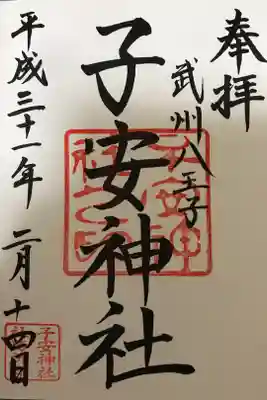 奉拝
武州八王子
子安神社
平成三十一年 二月 十四日
子安神社